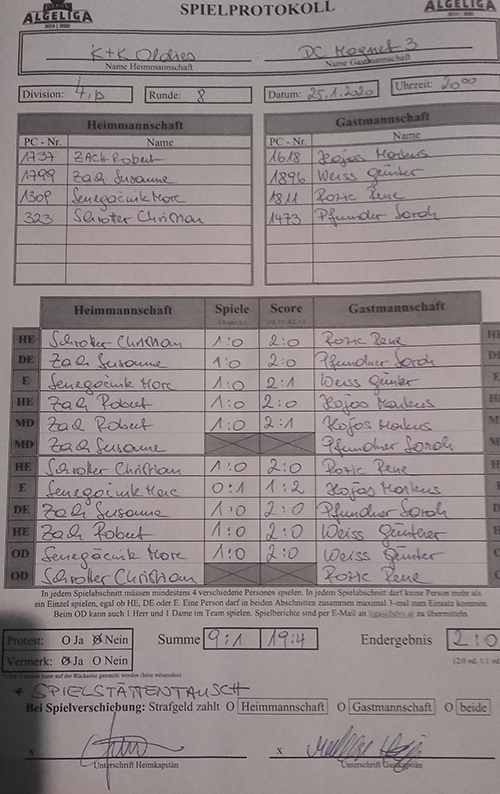 ALGELIGA SPIELPROTOKOLL ALGELIGA
K+K Oldies DC Magnet 3
Name Heimmannschaft Name Gastmannschaft
Division: 4,b Runde: 8 Datum: 25.1.2020 Uhrzeit: 20⁰⁰
Heimmannschaft Gastmannschaft
PC - Nr. Name PC - Nr. Name
1737 Zach Robert 1618 Hojas Markus
1799 Zach Susanne 1896 Weiss Günter
1309 Senegačnik Marc 1811 Rozic Rene
323 Schrotter Christian 1473 Pfundner Sarah
Heimmannschaft Spiele Score Gastmannschaft
HE Schrotter Christian 1:0 2:0 Rozic Rene HE
DE Zach Susanne 1:0 2:0 Pfundner Sarah DE
E Senegačnik Marc 1:0 2:1 Weiss Günter E
HE Zach Robert 1:0 2:0 Hojas Markus HE
MD Zach Robert 1:0 2:1 Hojas Markus
MD Zach Susanne Pfundner Sarah
HE Schrotter Christian 1:0 2:0 Rozic Rene HE
E Senegačnik Marc 0:1 1:2 Hojas Markus E
DE Zach Susanne 1:0 2:0 Pfundner Sarah
HE Zach Robert 1:0 2:0 Weiss Günther
OD Senegačnik Marc 1:0 2:0 Weiss Günter
OD Schrotter Christian Rozic Rene
In jedem Spielabschnitt müssen mindestens 4 verschiedene Personen spielen. In jedem Spielabschnitt darf keine Person mehr als
ein Einzel spielen, egal ob HE, DE oder E. Eine Person darf in beiden Abschnitten zusammen maximal 3-mal zum Einsatz kommen.
Beim OD kann auch 1 Herr und 1 Dame im Team spielen. Spielberichte sind per E-Mail an zu übermitteln.
Protest: O Ja O Nein Summe 9:1 19:4 Endergebnis 2:0
Vermerk: O Ja O Nein (2:0 od. 1:1 od.
* SPIELSTÄTTENTAUSCH
Bei Spielverschiebung: Strafgeld zahlt O Heimmannschaft O Gastmannschaft O beide
x x
Unterschrift Heimkapitän Unterschrift Gastkapitän